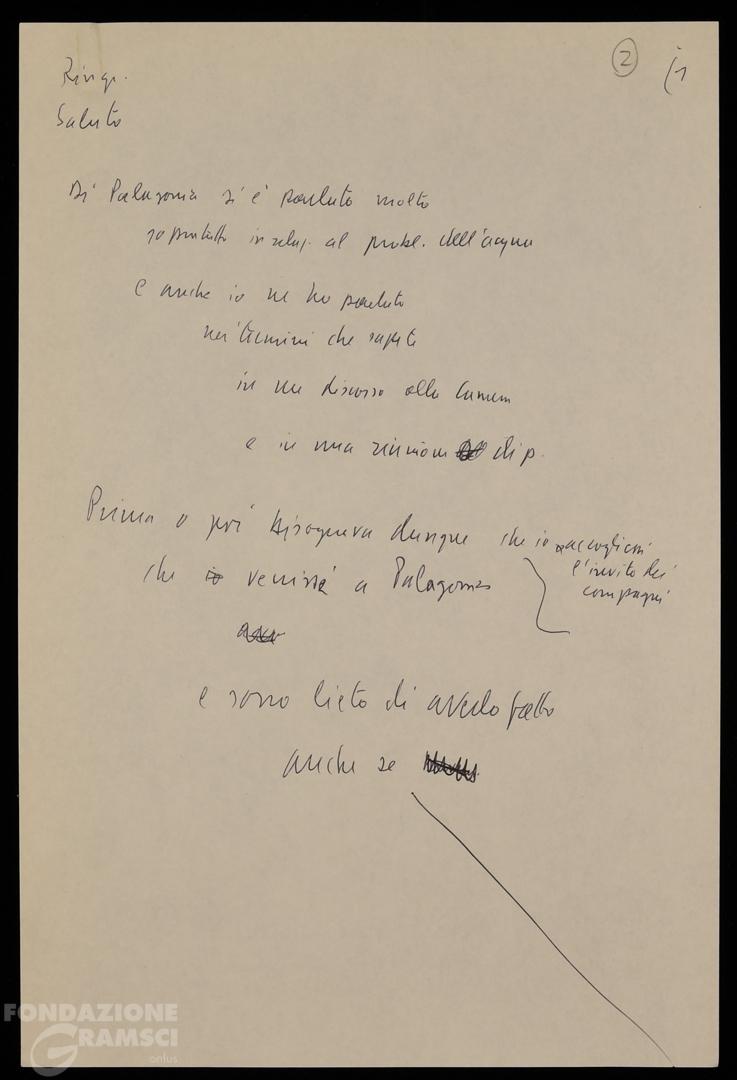 2
(1
Ringr.
Saluto
Di Palagonia si è parlato molto
soprattutto in relaz. al probl. dell'acqua
E anche io ne ho parlato
nei termini che sapete
in un discorso alla Camera
e in una riunione di p.
Prima o poi bisognava dunque che io accogliessi
l'invito dei
compagni
che io venissi a Palagonia
e sono lieto di averlo fatto
anche se
FONDAZIONE
GRAMSCI
onlus